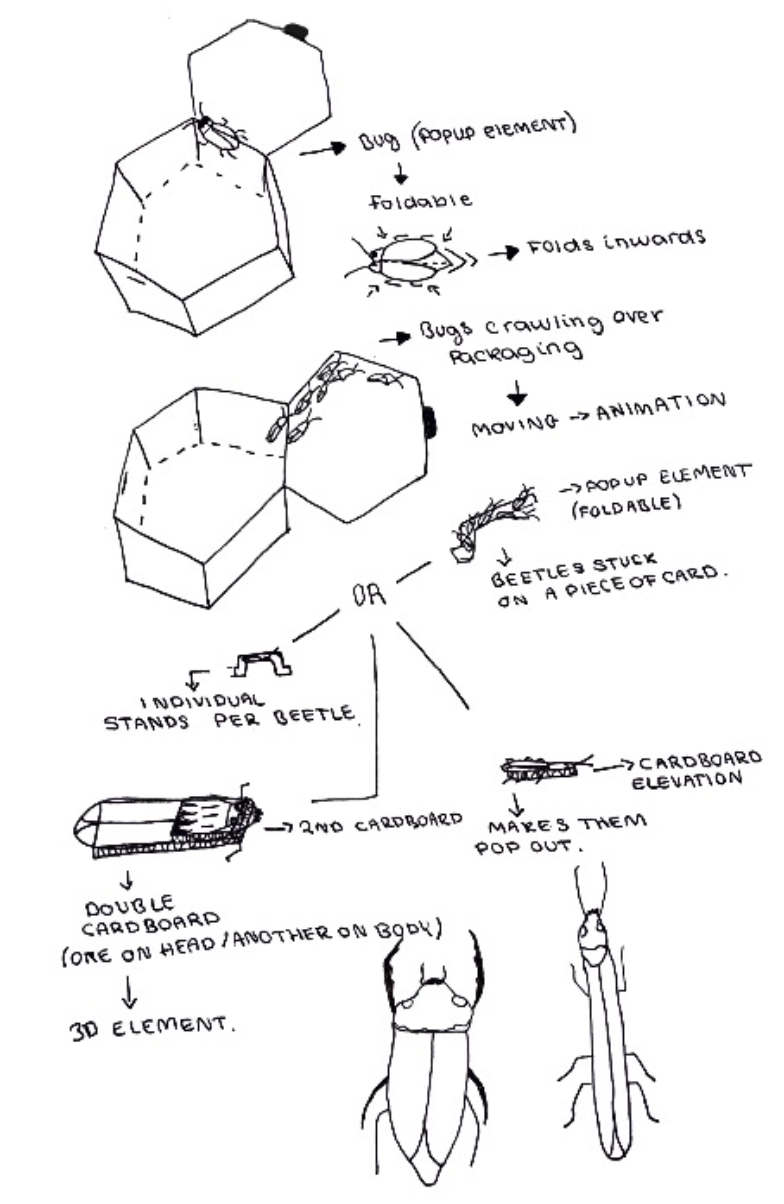 Bug (POPUP elEMENT)
foldable
Folds inwards
Bugs crawling over
Packaging
MOVING → ANIMATION
POPUP ELEMENT
(FOLDABLE)
BEETLES STUCK
ON A PIECE OF CARD.
OR
INDIVIDUAL
STANDS PER BEETLE.
CARDBOARD
ELEVATION
2ND CARDBOARD
MAKES THEM
POP OUT.
DOUBLE
CARDBOARD
(ONE ON HEAD / ANOTHER ON BODY)
3D ELEMENT.